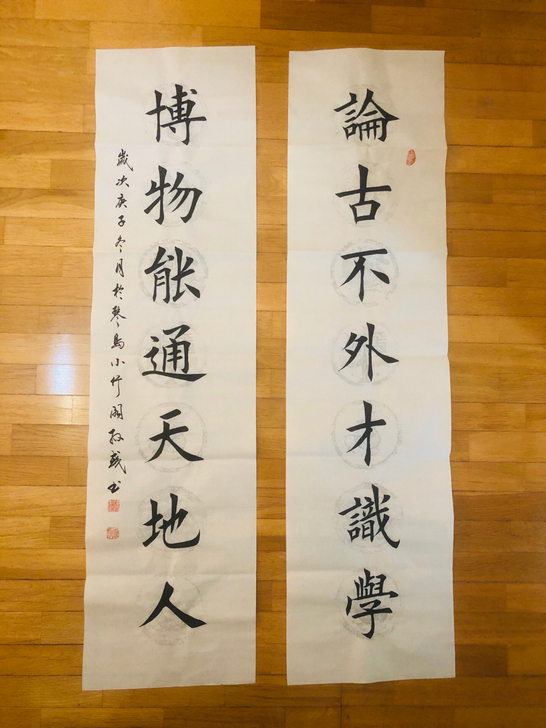 論古不外才識學
博物能通天地人
歲次庚子冬月於琴島小竹閣孫戰書